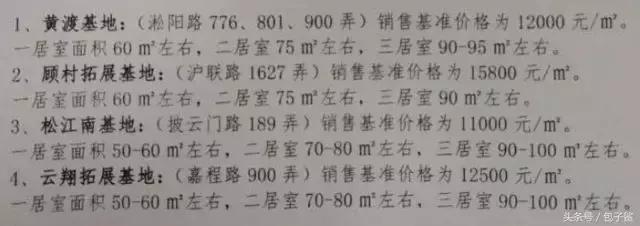 1、黄渡基地：（淞阳路 776、801、900 弄）销售基准价格为 12000 元/㎡。
一居室面积 60 ㎡左右，二居室 75 ㎡左右，三居室 90-95 ㎡左右。
2、顾村拓展基地：（沪联路 1627 弄）销售基准价格为 15800 元/㎡。
一居室面积 60 ㎡左右，二居室 75 ㎡左右，三居室 90 ㎡左右。
3、松江南基地：（披云门路 189 弄）销售基准价格为 11000 元/㎡。
一居室面积 50-60 ㎡左右，二居室 70-80 ㎡左右，三居室 90-100 ㎡左右。
4、云翔拓展基地：（嘉程路 900 弄）销售基准价格为 12500 元/㎡。
一居室面积 50-60 ㎡左右，二居室 70-80 ㎡左右，三居室 90-100 ㎡左右。